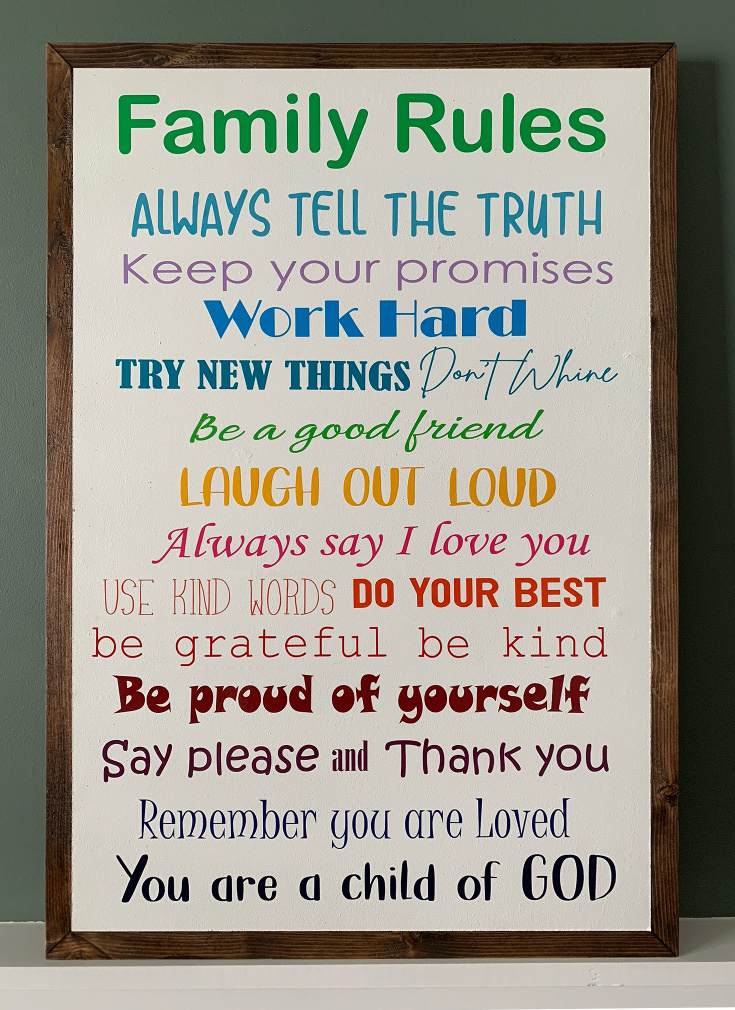 Family Rules
ALWAYS TELL THE TRUTH
Keep your promises
Work Hard
TRY NEW THINGS Don't Whine
Be a good friend
LAUGH OUT LOUD
Always say I love you
USE KIND WORDS DO YOUR BEST
be grateful be kind
Be proud of yourself
Say please and Thank you
Remember you are Loved
You are a child of GOD